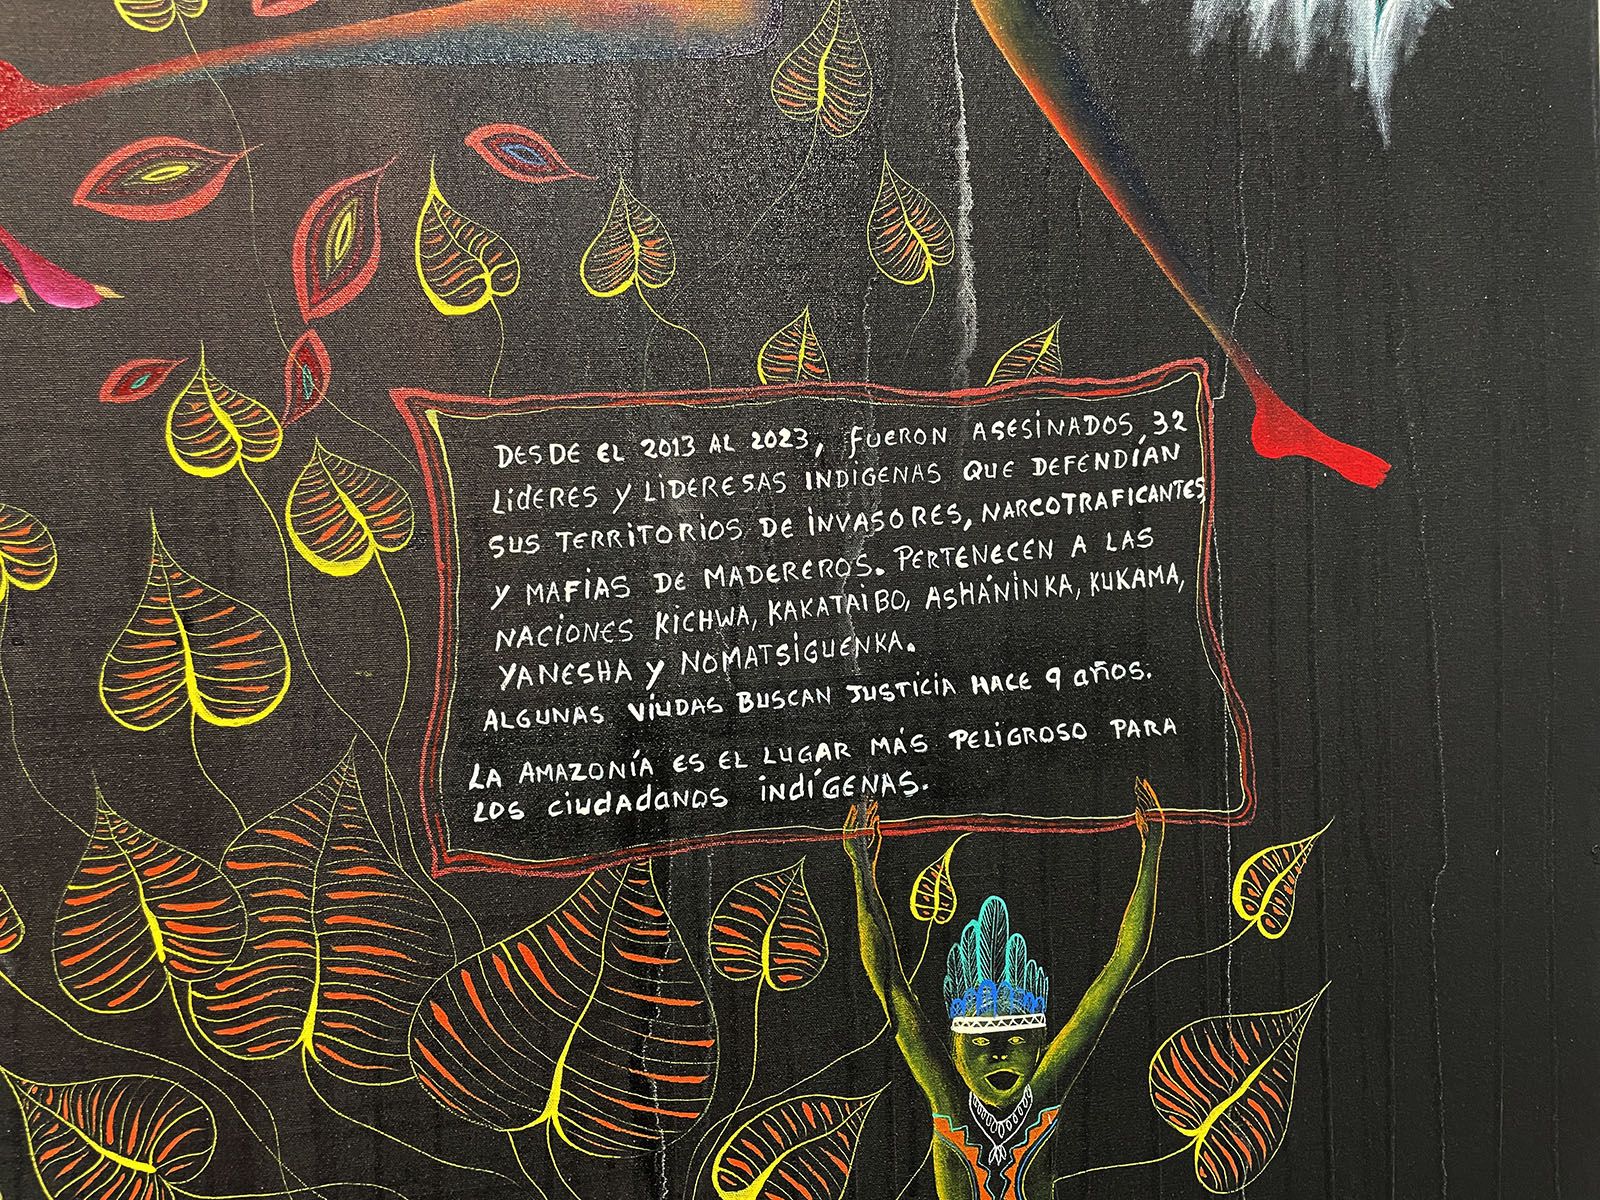 DESDE EL 2013 AL 2023, FUERON ASESINADOS, 32
LIDERES Y LIDERESAS INDÍGENAS QUE DEFENDÍAN
SUS TERRITORIOS DE INVASORES, NARCOTRAFICANTES
Y MAFIAS DE MADEREROS. PERTENECEN A LAS
NACIONES KICHWA, KAKATAIBO, ASHÁNINKA, KUKAMA,
YANESHA Y NOMATSIGUENKA.
ALGUNAS VIUDAS BUSCAN JUSTICIA HACE 9 AÑOS.
LA AMAZONÍA ES EL LUGAR MÁS PELIGROSO PARA
LOS CIUDADANOS INDÍGENAS.